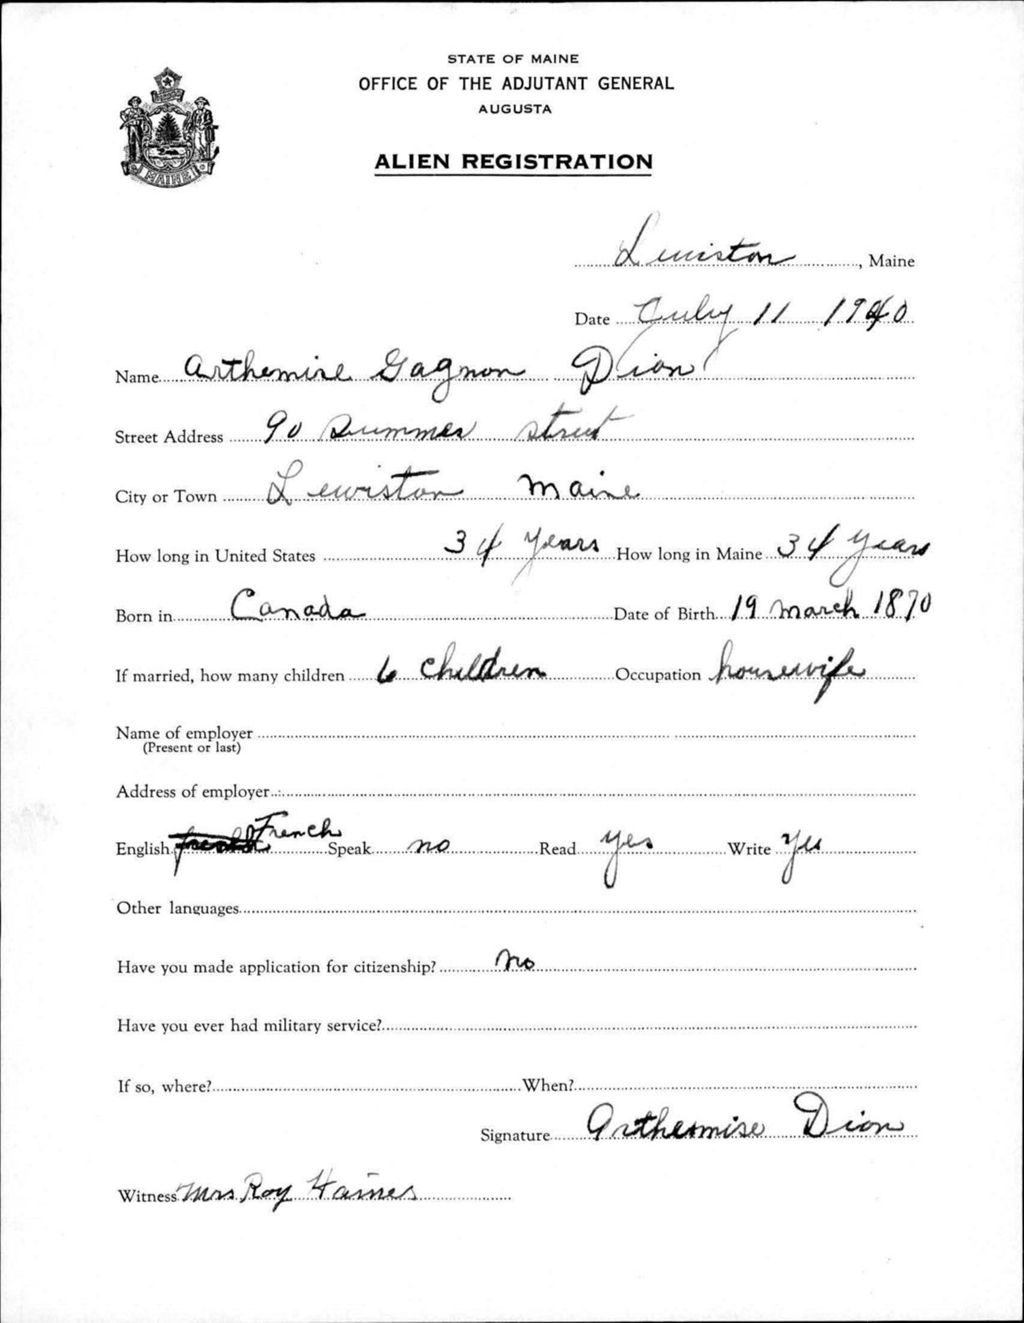 STATE OF MAINE
OFFICE OF THE ADJUTANT GENERAL
AUGUSTA
ALIEN REGISTRATION
MAINE
Lewiston, Maine
Date July 11 1940
Name Arthemise Gagnon Dion
Street Address 90 Summer Street
City or Town Lewiston Maine
How long in United States 34 years How long in Maine 34 years
Born in Canada Date of Birth 19 March 1870
If married, how many children 6 children Occupation housewife
Name of employer
(Present or last)
Address of employer
English French Speak no Read yes Write yes
Other languages
Have you made application for citizenship? no
Have you ever had military service?
If so, where? When?
Signature Arthemise Dion
Witness Mrs Roy Haines